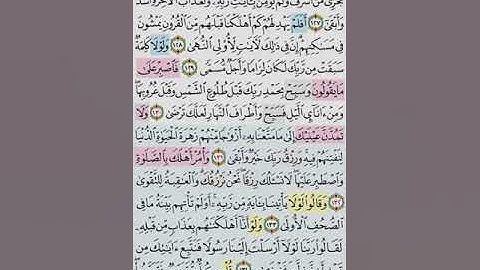 نجزي من أسرف ولم يؤمن بآيات ربه ولعذاب الآخرة أشد
وأبقى ١٢٧ أفلم يهد لهم كم أهلكنا قبلهم من القرون يمشون
في مساكنهم إن في ذلك لآيات لأولي النهى ١٢٨ ولولا كلمة
سبقت من ربك لكان لزاما وأجل مسمى ١٢٩ فاصبر على
ما يقولون وسبح بحمد ربك قبل طلوع الشمس وقبل غروبها
ومن آناء الليل فسبح وأطراف النهار لعلك ترضى ١٣٠ ولا
تمدن عينيك إلى ما متعنا به أزواجا منهم زهرة الحياة الدنيا
لنفتنهم فيه ورزق ربك خير وأبقى ١٣١ وأمر أهلك بالصلاة
واصطبر عليها لا نسئلك رزقا نحن نرزقك والعاقبة للتقوى
١٣٢ وقالوا لولا يأتينا بآية من ربه أولم تأتهم بينة ما في
الصحف الأولى ١٣٣ ولو أنا أهلكناهم بعذاب من قبله
لقالوا ربنا لولا أرسلت إلينا رسولا فنتبع آياتك من